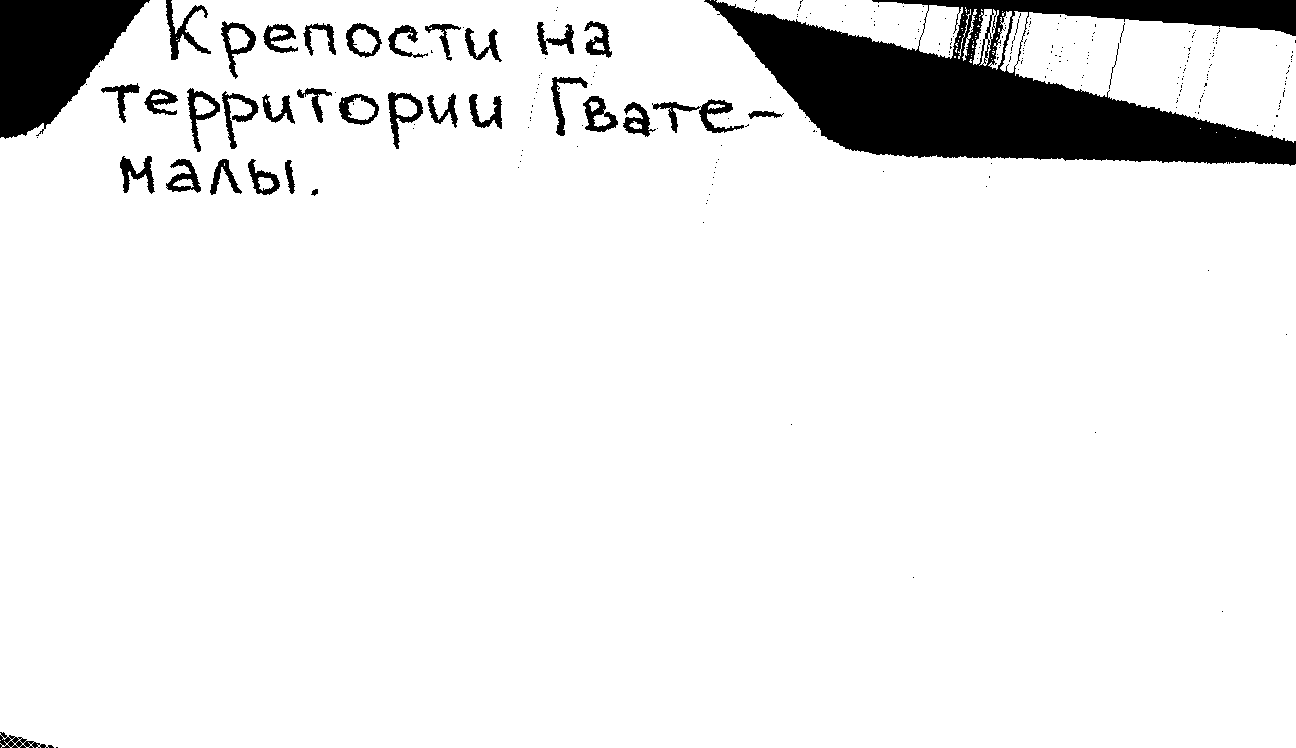 Крепости на
территории Гвате-
малы.